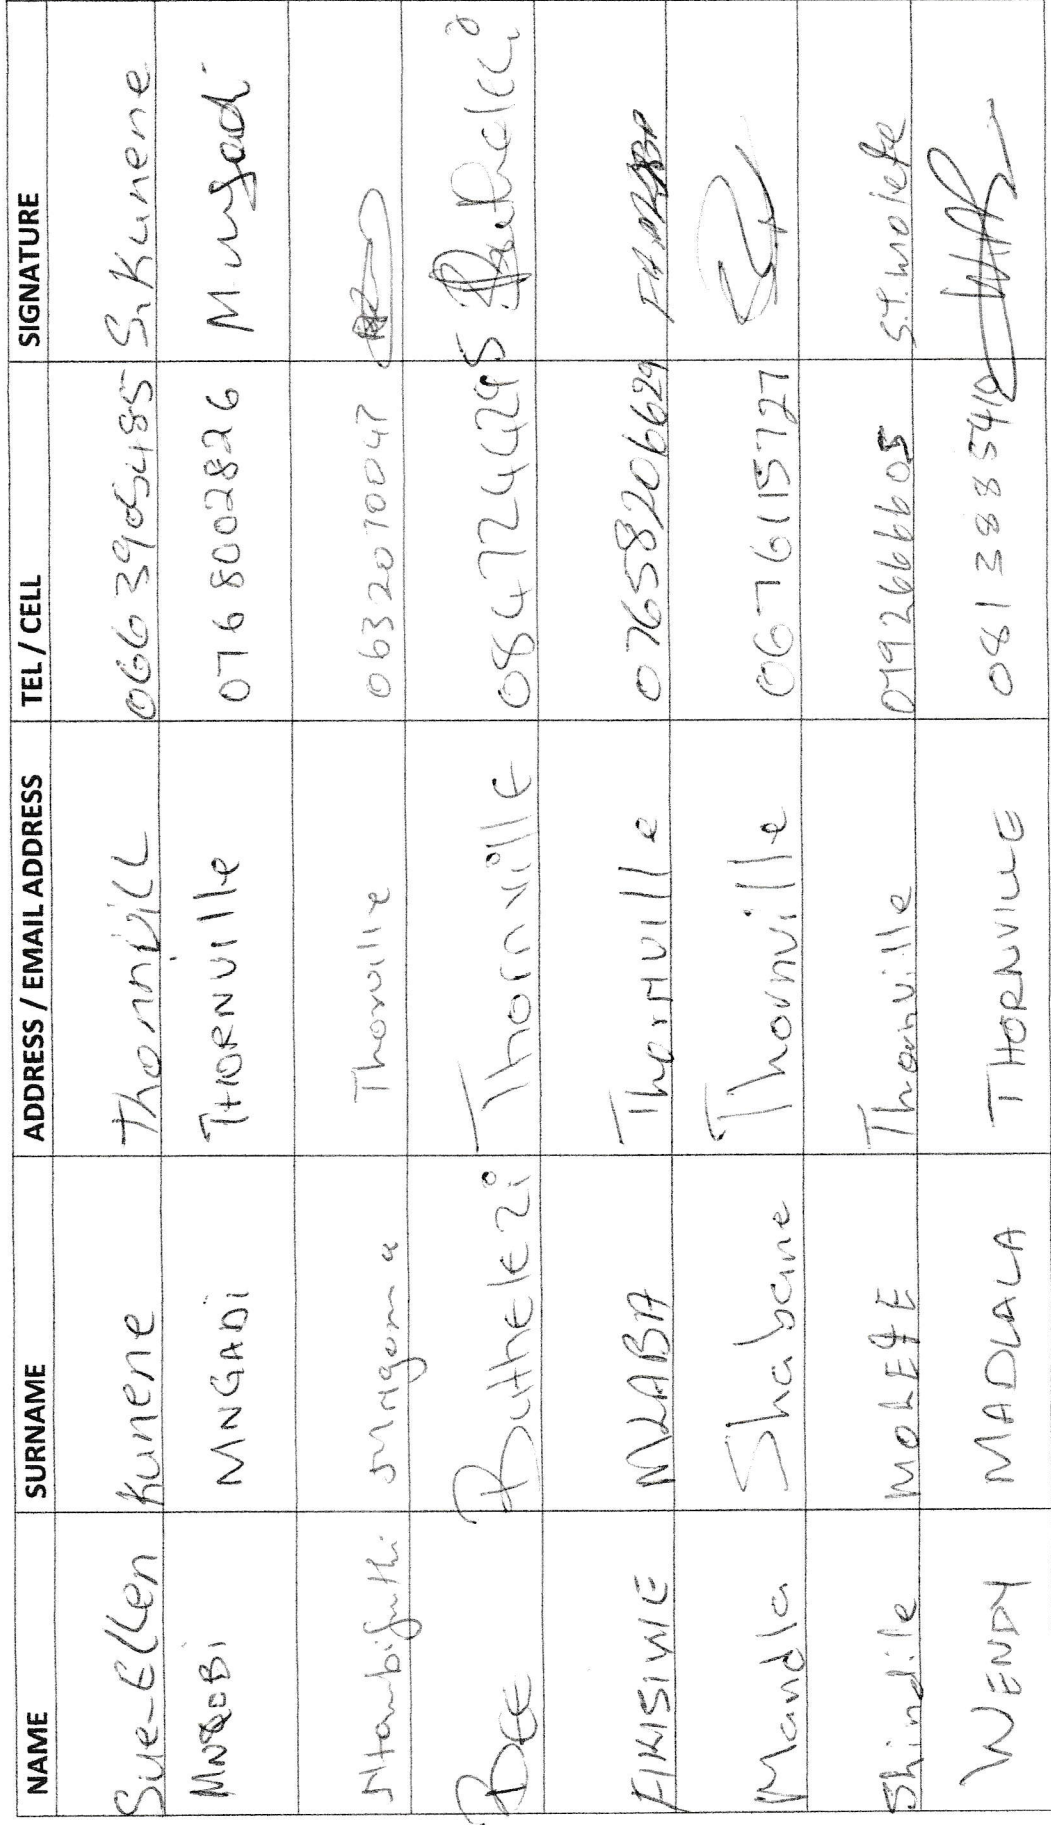 NAME SURNAME ADDRESS / EMAIL ADDRESS TEL / CELL SIGNATURE
Sue-Ellen Kunene Thornvill 0663905485 S. Kunene
MNGADI THORNVIlle 0768002826 Mngadi
Mngoma Thornville 0632070047
BEE Buthelezi Thornville 0847244298 Buthelezi
FIKISIWE MLABA Thornville 0765820662
Mandla Shabane Thornville 0676115727
Shindile MOLEFE Thornville 0792666605 S.T. Molefe
WENDY MADLALA THORNVILLE 081388541